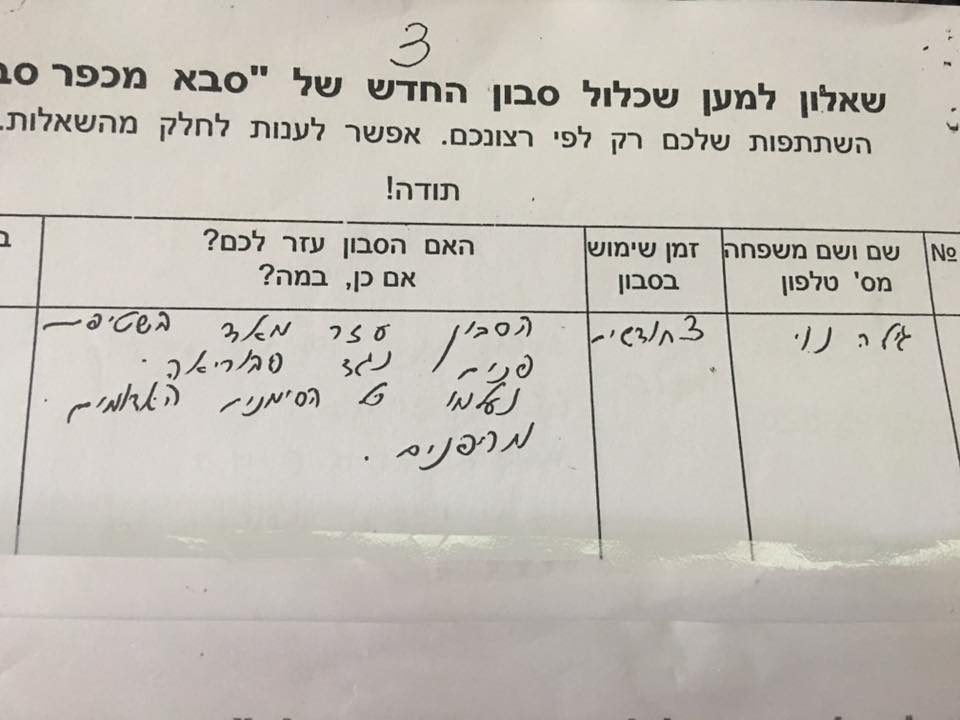 3
שאלון למען שכלול סבון החדש של "סבא מכפר סב
השתתפות שלכם רק לפי רצונכם. אפשר לענות לחלק מהשאלות.
תודה!
№
שם ושם משפחה
מס' טלפון
זמן שימוש
בסבון
האם הסבון עזר לכם?
אם כן, במה?
ב
גילה נוי
3 חודשים
הסבון עזר מאד בשטיפת
פנים נגד
נעלמו כל הסימנים האדומים